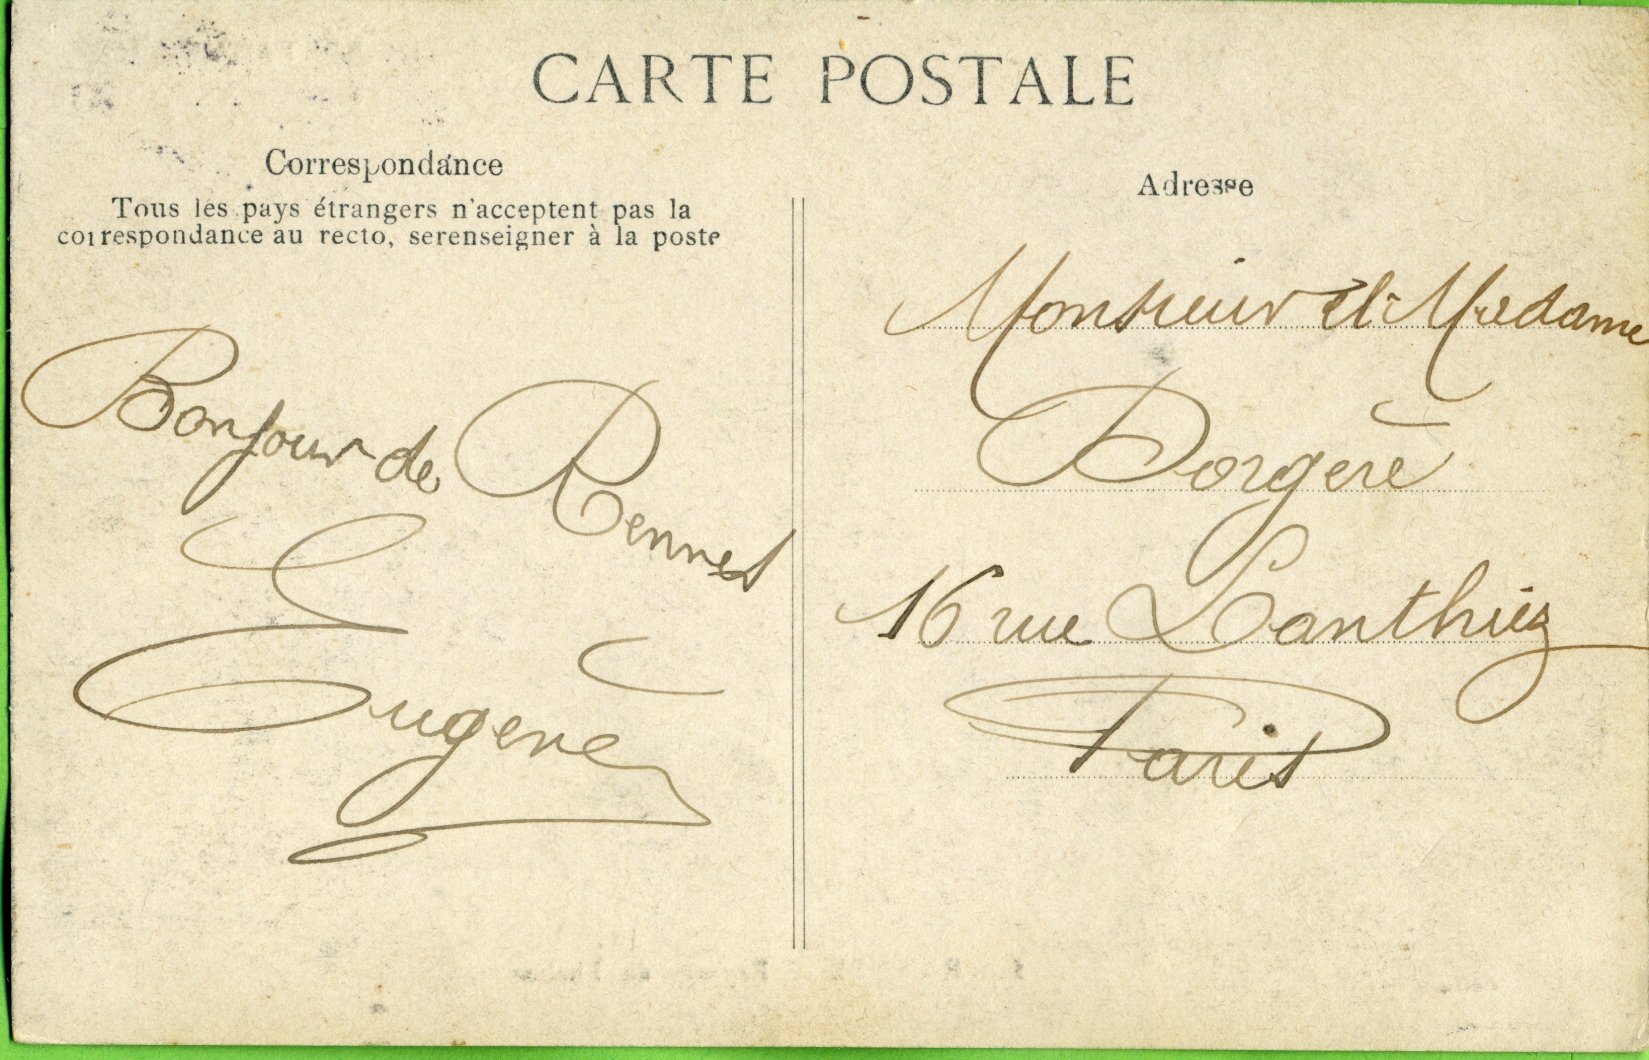 CARTE POSTALE
Correspondance
Tous les pays étrangers n'acceptent pas la
correspondance au recto, serenseigner à la poste
Bonjour de Rennes
Eugène
Adresse
Monsieur et Madame
Dorgère
16 rue Lanthiez
Paris